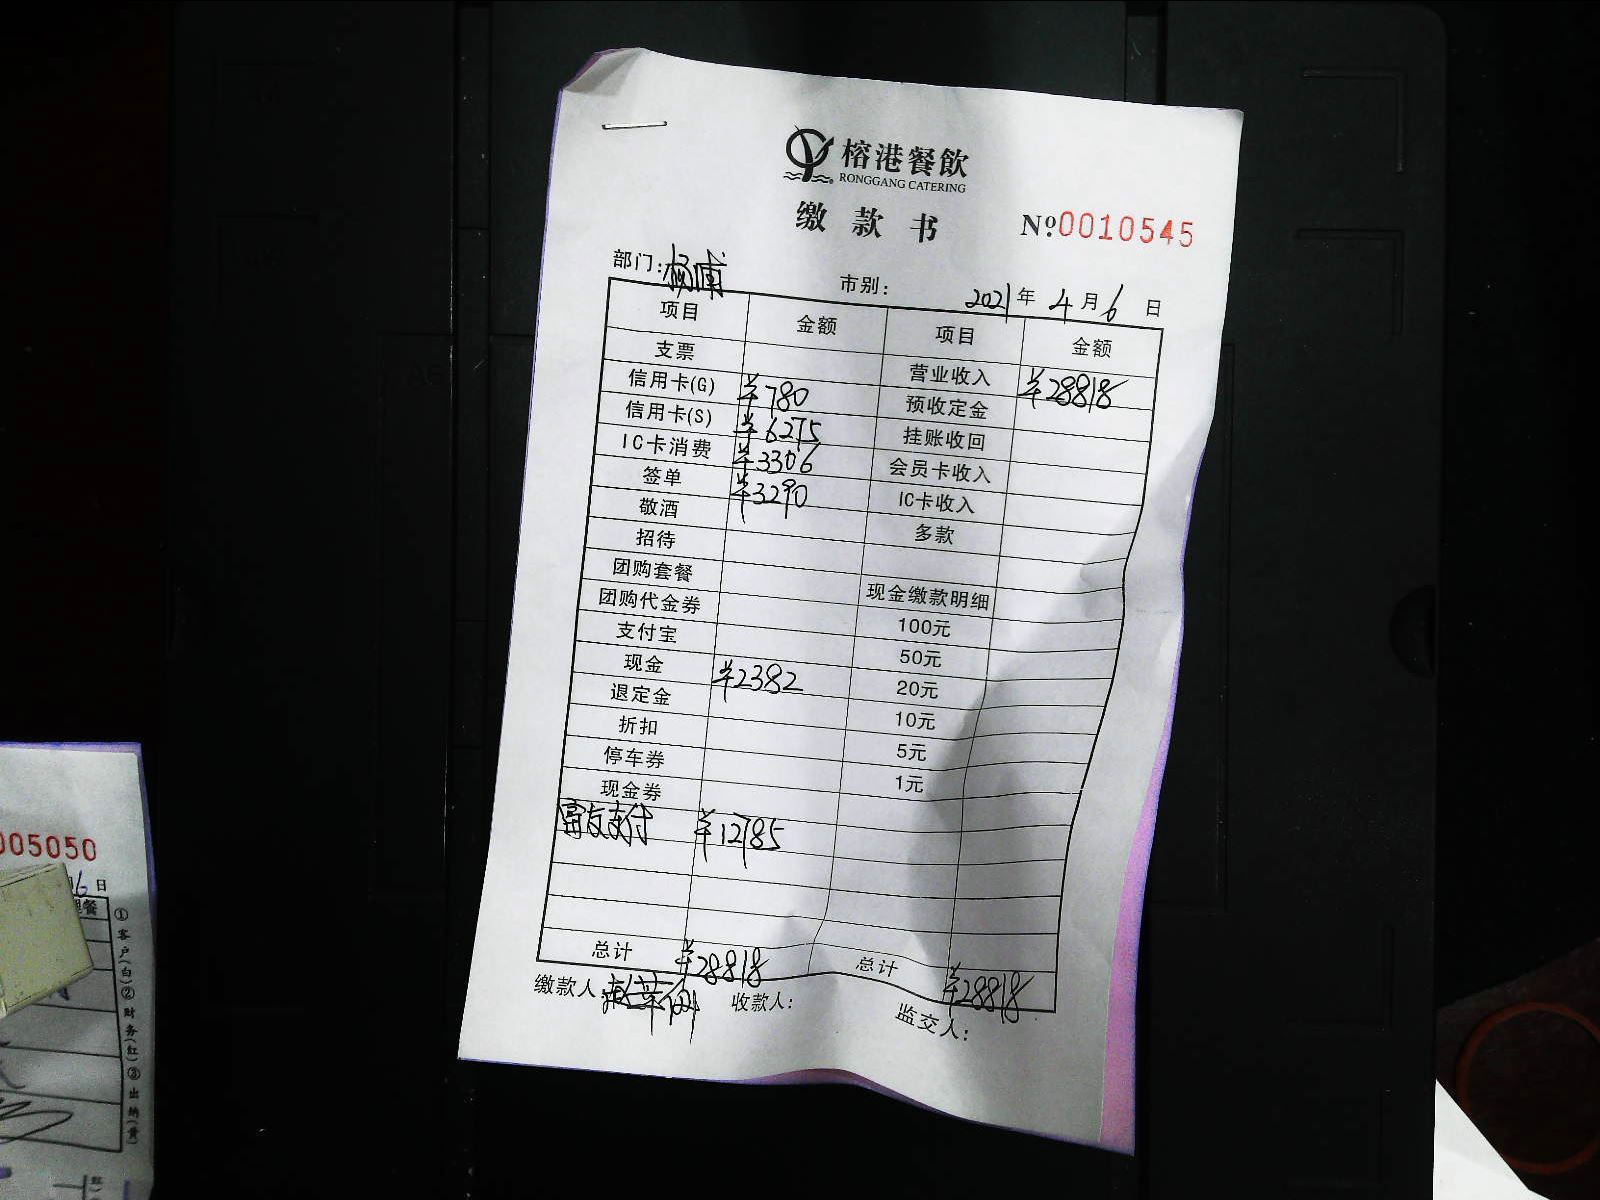 榕港餐飲
RONGGANG CATERING
缴款书 №0010545
部门:杨浦 市别: 2021年4月6日
项目 金额 项目 金额
支票 营业收入 ¥28818
信用卡(G) ¥780 预收定金
信用卡(S) ¥6275 挂账收回
IC卡消费 ¥3306 会员卡收入
签单 ¥3290 IC卡收入
敬酒 多款
招待
团购套餐 现金缴款明细
团购代金券 100元
支付宝 50元
现金 ¥2382 20元
退定金 10元
折扣 5元
停车券 1元
现金券
富友支付 ¥12785
总计 ¥28818 总计 ¥28818
缴款人: 收款人: 监交人:
005050
6日
①客户(白)②财务(红)③出纳(黄)